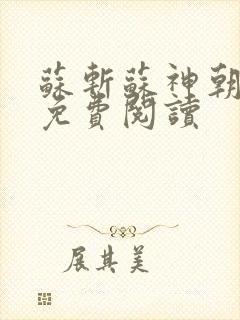 蘇斬蘇神朝
免費閱讀
展其美